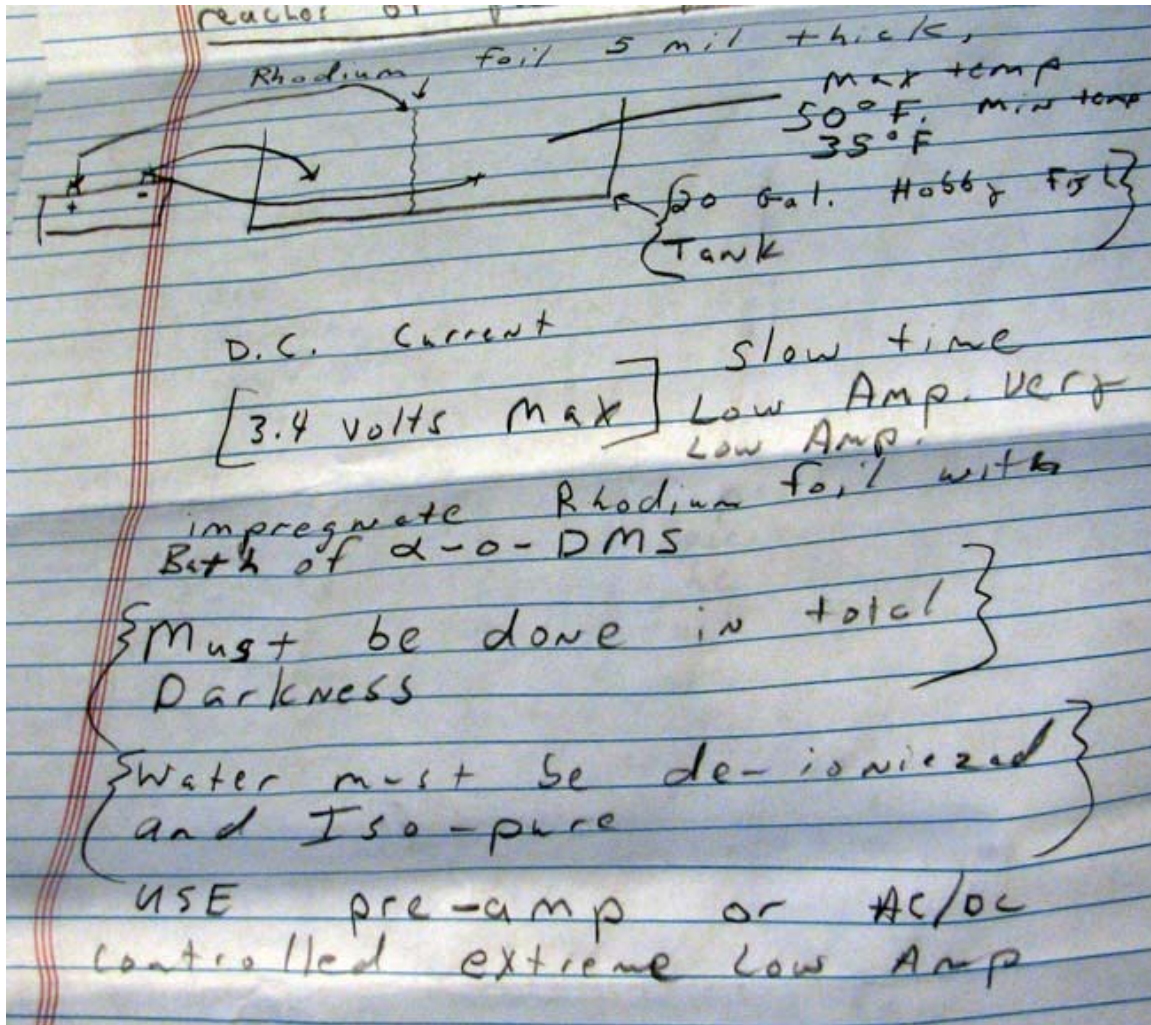 reacher or
Rhodium foil 5 mil thick,
Max temp
50°F. Min temp
35°F
+ -
20 Gal. Hobby
Tank
D.C. Current
[3.4 volts Max]
Slow time
Low Amp. Very
Low Amp.
impregnate Rhodium foil with
Bath of α-o-DMS
{Must be done in total}
Darkness
{Water must be de-ioniezed}
and Iso-pure
USE pre-amp or AC/DC
controlled extreme Low Amp